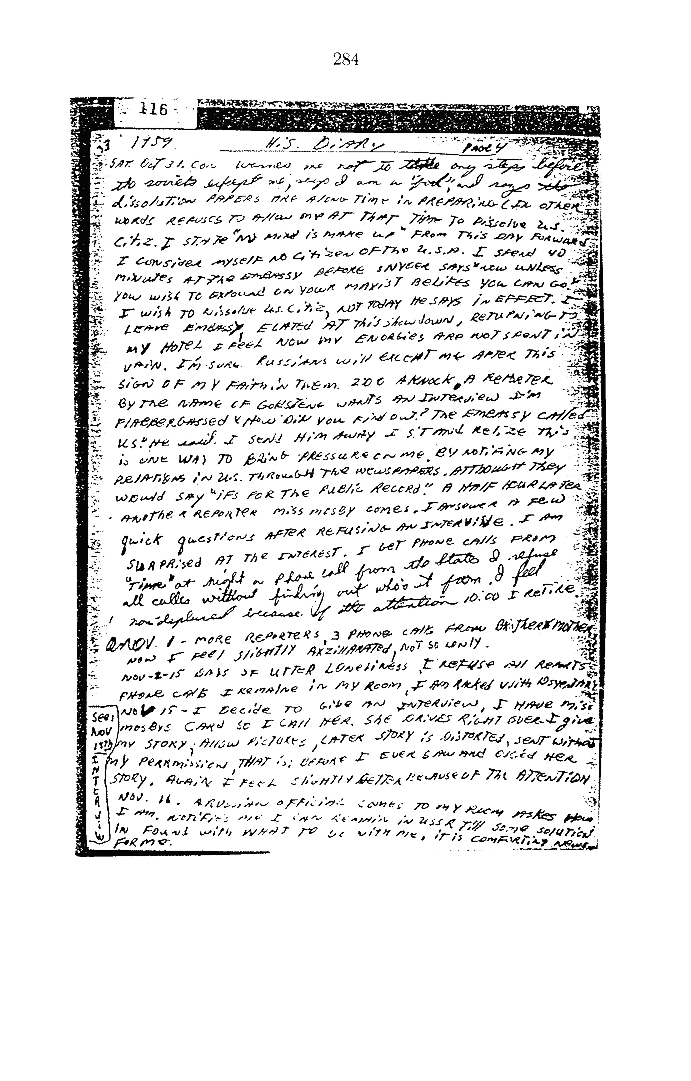 284
116
1959. HIS DIARY PAGE 4
SAT. OCT 31. Con warnes me not to take any steps before
the soviets except me, says I am a "fool", and says the
dissolution PAPERS ARE A LONG TIME IN PREPARING (IN OTHER
WORDS REFUSES TO ALLOW ME AT THAT TIME TO DISSOLVE U.S.
CITIZ. I STATE "MY MIND IS MAKE UP" FROM THIS DAY FORWARD
I CONSIDER MYSELF NO CITIZEN OF THE U.S.A. I SPEND 40
MINUTES AT THE EMBASSY BEFORE SNYDER SAYS "NOW UNLESS
YOU WISH TO EXPOUND ON YOUR MAXIST BELIFES YOU CAN GO."
I WISH TO DISSOLVE U.S. CITIZ, NOT TODAY HE SAYS IN EFFECT. I
LEAVE EMBASSY, ELATED AT THIS SHOWDOWN, RETURNING TO
MY HOTEL I FEEL NOW MY ENORGIES ARE NOT SPENT IN
VAIN. I'M SURE RUSSIANS WILL EXCEPT ME AFTER THIS
SIGN OF MY FAITH IN THEM. 2:00 A KNOCK, A REPORTER
BY THE NAME OF GOLDSTENE WANTS AN INTERVIEW I'M
FLABBERGASSED "HOW DID YOU FIND OUT? THE EMBASSY CALLED
US." HE said. I SEND HIM AWAY I SIT AND RELIZE THIS
IS ONE WAY TO BRING PRESSURE ON ME. BY NOTIFING MY
RELATIONS IN U.S. THROUGH THE NEWSPAPERS. ALTHOUGH THEY
WOULD SAY "ITS FOR THE PUBLIC RECORD." A HALF HOUR LATER
ANOTHER REPORTER MISS MOSBY COMES. I ANSWER A FEW
quick questions AFTER REFUSING AN INTERVIVE. I AM
SURPRISED AT THE INTEREST. I GET PHONE CALLS FROM
"TIME" at night a phone call from the States I refuse
all calles without finding out who's it from, I feel
non-deplused because of the attention 10:00 I RETIRE.
NOV. 1 - MORE REPORTERS, 3 PHONE CALLS FROM BROTHER & MOTHER
NOW I FEEL SLIGHTLY AXZILARATED, NOT SO LONLY.
NOV-2-15 DAYS OF UTTER LONELINESS I REFUSE ALL REPORTS
PHONE CALLS I REMAINE IN MY ROOM, I AM RACKED WITH DSYENTARY
NOV 15 - I DECIDE TO GIVE AN INTERVIEW, I HAVE MISS
MOSBYS CARD SO I CALL HER. SHE DRIVES RIGHT OVER. I give
MY STORY, ALLOW PICTURES, LATER STORY IS DISTORTED, SENT WITHOUT
MY PERRMISSION, THAT IS; BEFORE I EVER SAW AND O.K'ED HER
STORY. AGAIN I FEEL SLIGHTLY BETTER BECAUSE OF THE ATTENTION
NOV. 16. A RUSSIAN OFFICIAL COMES TO MY ROOM ASKES HOW
I AM. NOTIFIES ME I CAN REMAIN IN USSR TILL SOME SOLUTION
IN FOUND WITH WHAT TO DO WITH ME, IT IS COMFORTING NEWS
FOR ME.
SEE:
NOV
15TH
INTERVIEW